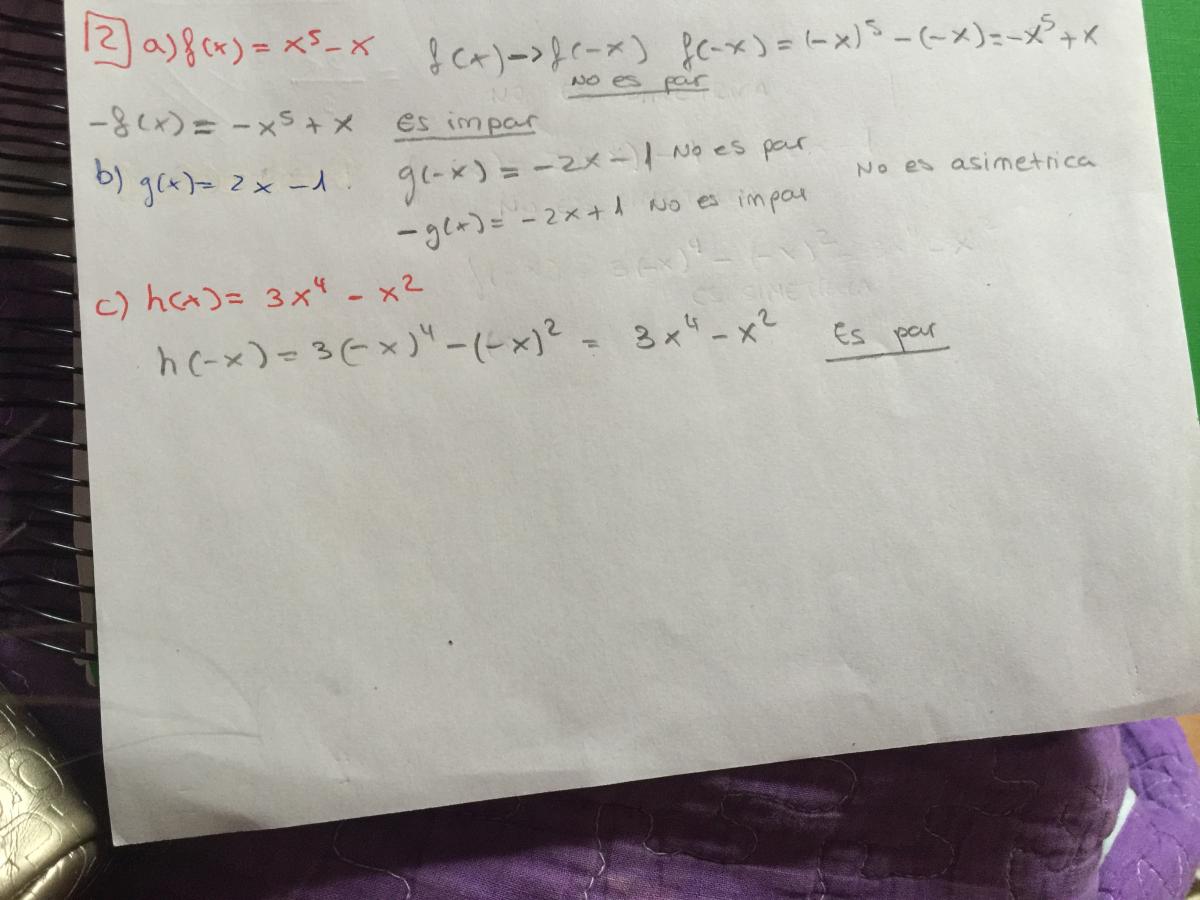 2 a) f(x) = x⁵ - x f(x) -> f(-x) f(-x) = (-x)⁵ - (-x) = -x⁵ + x
No es par
-f(x) = -x⁵ + x es impar
b) g(x) = 2x - 1. g(-x) = -2x - 1 No es par No es asimetrica
-g(x) = -2x + 1 No es impar
c) h(x) = 3x⁴ - x²
h(-x) = 3(-x)⁴ - (-x)² = 3x⁴ - x² Es par